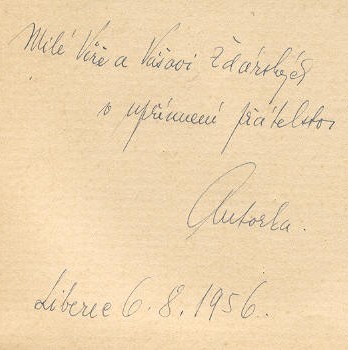 Milé Věře a Vášovi Žďárských
v upřímném přátelství
Autorka.
Liberec 6.8.1956.